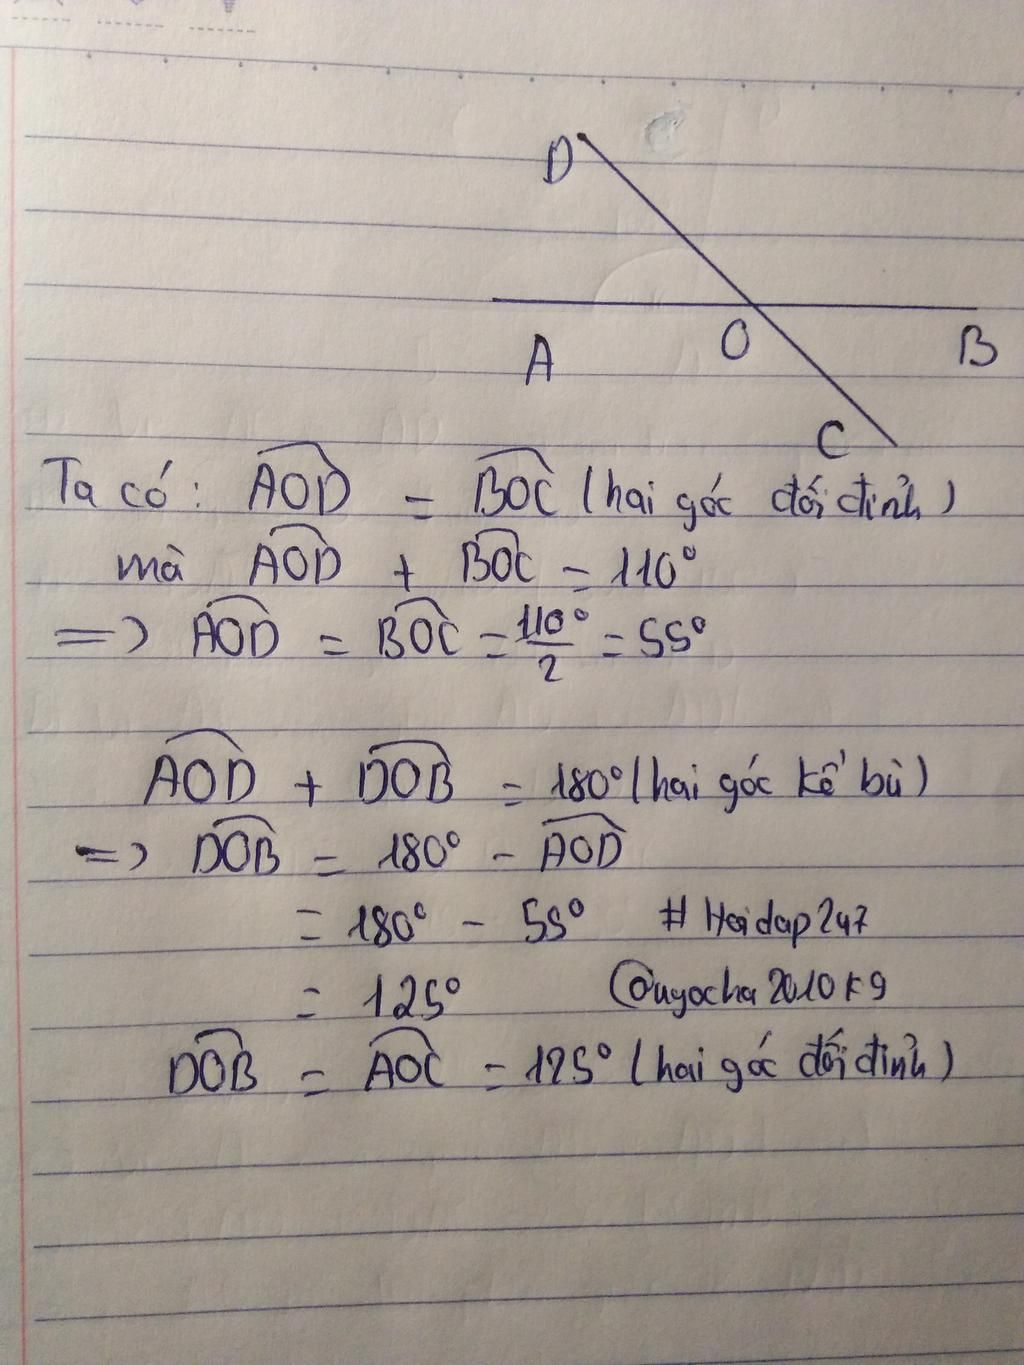 D
O
A
B
C
Ta có: AOD = BOC (hai góc đối đỉnh)
mà AOD + BOC = 110°
=> AOD = BOC = 110°/2 = 55°
AOD + DOB = 180° (hai góc kề bù)
=> DOB = 180° - AOD
= 180° - 55° # Hoidap247
= 125° @ngocha2010k9
DOB = AOC = 125° (hai góc đối đỉnh)